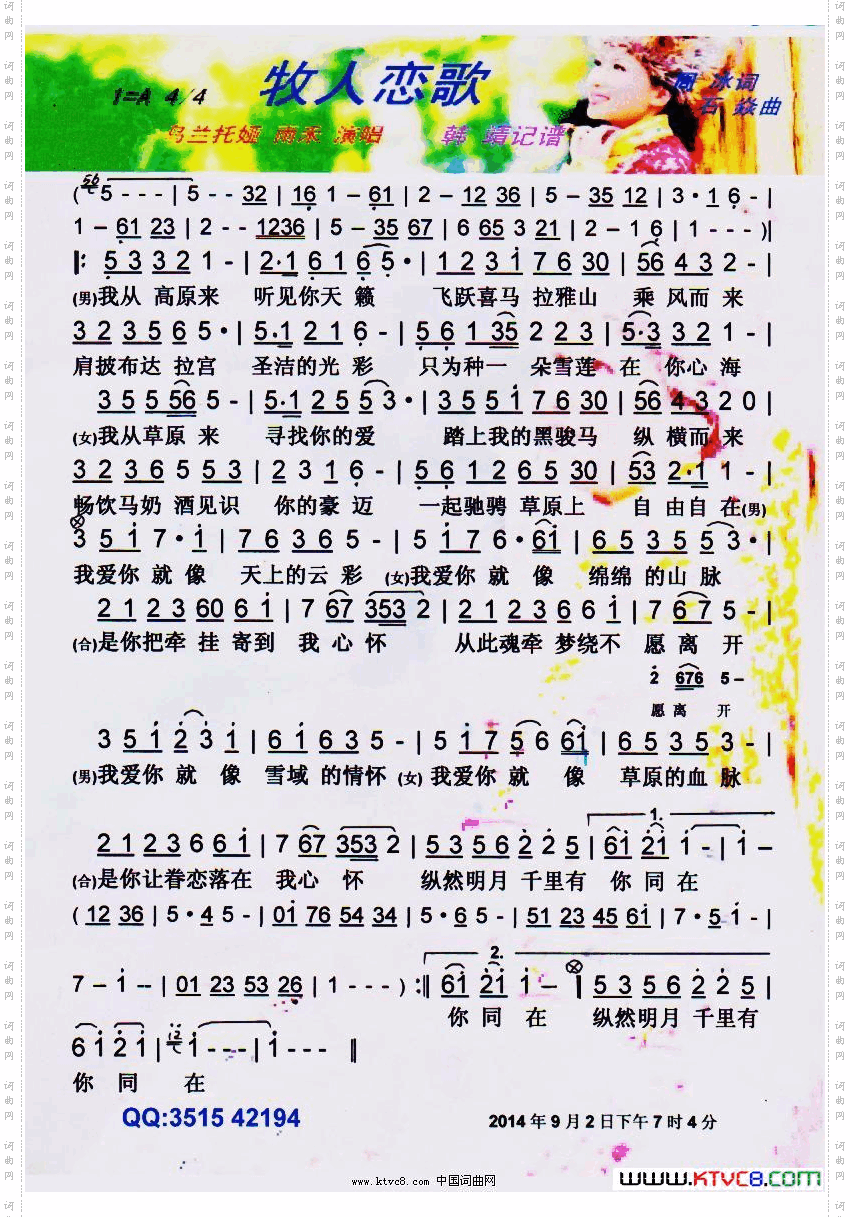 牧人恋歌
1=A 4/4
周冰词
石焱曲
乌兰托娅 雨禾 演唱 韩靖记谱
(5 - - - | 5 - - 32 | 16 1 - 61 | 2 - 12 36 | 5 - 35 12 | 3 · 1 6 - |
1 - 61 23 | 2 - - 1236 | 5 - 35 67 | 6 65 3 21 | 2 - 1 6 | 1 - - - )|
|: 5 3 3 2 1 - | 2·1 6 1 6 5 · | 1 2 3 1 7 6 30 | 56 4 3 2 - |
(男)我从 高原来 听见你天 籁 飞跃喜马 拉雅山 乘 风而 来
3 2 3 5 6 5 · | 5·1 2 1 6 - | 5 6 1 35 2 2 3 | 5·3 3 2 1 - |
肩披布达 拉宫 圣洁的光 彩 只为种一 朵雪莲 在 你心 海
3 5 5 56 5 - | 5·1 2 5 5 3 · | 3 5 5 1 7 6 30 | 56 4 3 2 0 |
(女)我从草原 来 寻找你的 爱 踏上我的黑骏马 纵 横而 来
3 2 3 6 5 5 3 | 2 3 1 6 - | 5 6 1 2 6 5 30 | 53 2·1 1 - |
畅饮马奶 酒见识 你的豪 迈 一起驰骋 草原上 自 由自 在(男)
3 5 1 7 · 1 | 7 6 3 6 5 - | 5 1 7 6 · 61 | 6 5 3 5 5 3 · |
我爱你 就 像 天上的云 彩 (女)我爱你 就 像 绵绵 的山 脉
2 1 2 3 60 6 1 | 7 67 353 2 | 2 1 2 3 6 6 1 | 7 6 7 5 - |
(合)是你把牵 挂 寄到 我 心 怀 从此魂牵 梦绕不 愿 离 开
2 676 5 -
愿 离 开
3 5 1 2 3 1 | 6 1 6 3 5 - | 5 1 7 5 6 61 | 6 5 3 5 3 - |
(男)我爱你 就 像 雪域 的情怀 (女) 我爱你 就 像 草原的血 脉
1.
2 1 2 3 6 6 1 | 7 67 353 2 | 5 3 5 6 2 2 5 | 61 21 1 - | 1 -
(合)是你让眷恋落在 我心 怀 纵然明月 千里有 你 同 在
( 12 36 | 5 · 4 5 - | 01 76 54 34 | 5 · 6 5 - | 51 23 45 61 | 7 · 5 1 - |
2.
7 - 1 -- | 01 23 53 26 | 1 - - - ) :| 61 21 1 - | 5 3 5 6 2 2 5 |
你 同 在 纵然明月 千里有
6 1 2 1 | 1 - - - | 1 - - - ||
你 同 在
QQ:3515 42194
2014 年 9 月 2 日下午 7 时 4 分
www.ktvc8.com 中国词曲网
www.KTVC8.com